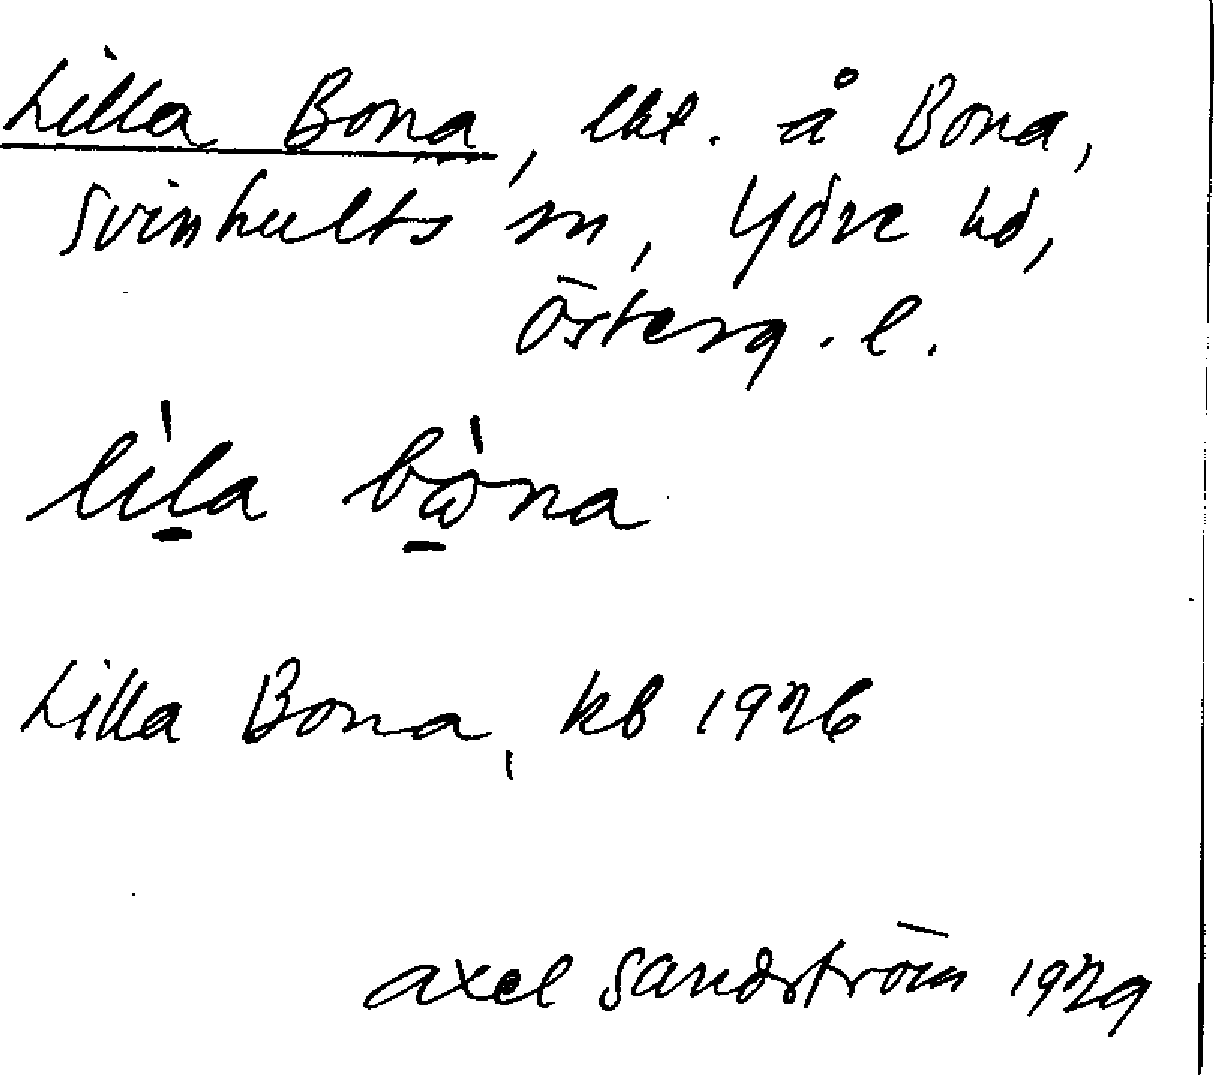 Lilla Bona, lht. å Bona,
Svinhults sn, Ydre hd,
Österg. l.
lìl̠a bὼ̠na
Lilla Bona, kb 1926
Axel Sandström 1929